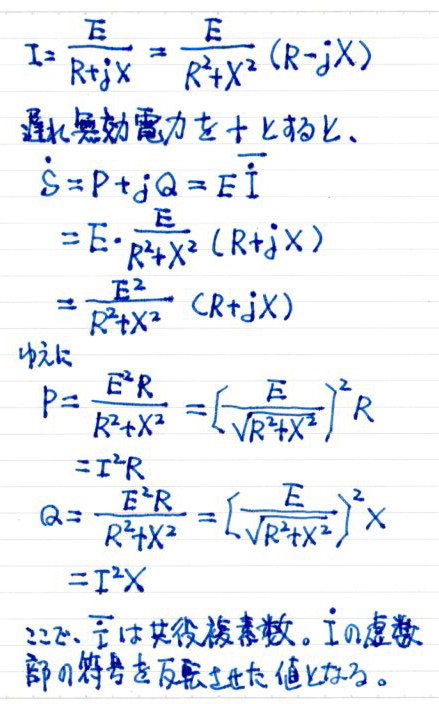 I = E/(R+jX) = E/(R²+X²) (R-jX)
遅れ無効電力を+とすると、
Ṡ = P+jQ = E\overline{İ}
= E・E/(R²+X²) (R+jX)
= E²/(R²+X²) (R+jX)
ゆえに
P = E²R/(R²+X²) = [E/√(R²+X²)]² R
= I²R
Q = E²R/(R²+X²) = [E/√(R²+X²)]² X
= I²X
ここで、\overline{İ}は共役複素数。İの虚数
部の符号を反転させた値となる。